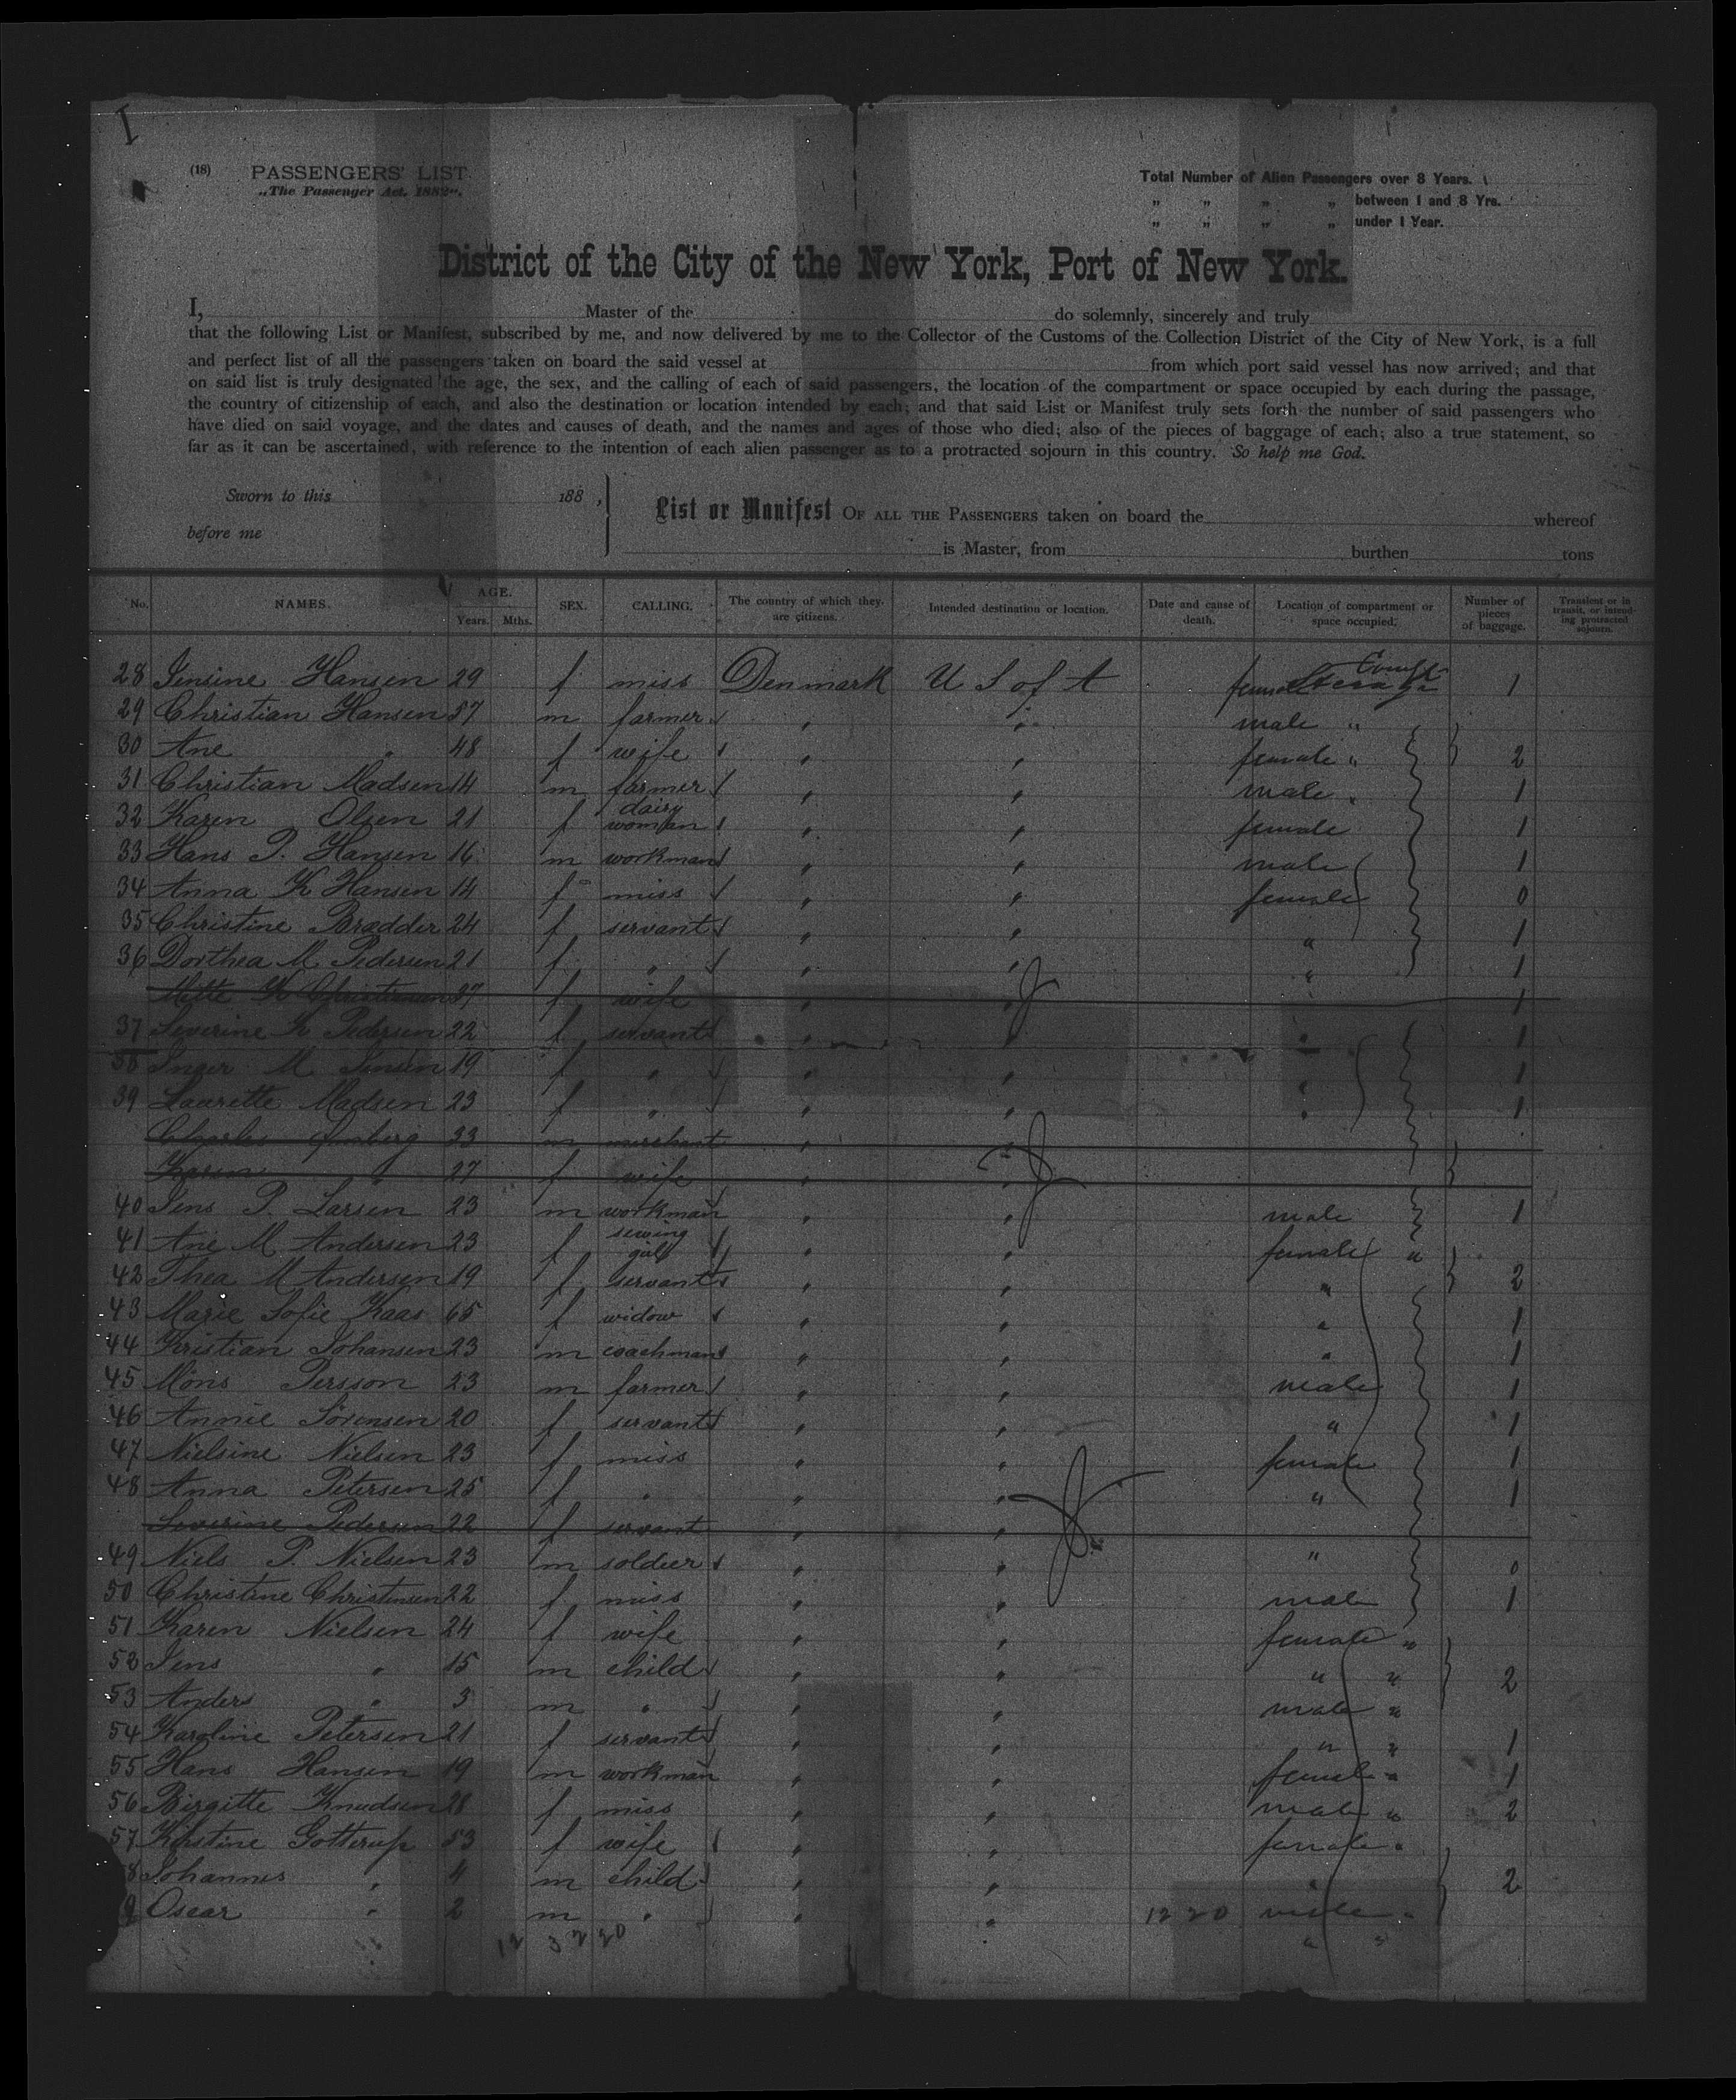 I
(18) PASSENGERS' LIST.
„The Passenger Act, 1882".
Total Number of Alien Passengers over 8 Years.
„ „ „ „ between 1 and 8 Yrs.
„ „ „ „ under 1 Year.
District of the City of the New York, Port of New York.
I, Master of the do solemnly, sincerely and truly
that the following List or Manifest, subscribed by me, and now delivered by me to the Collector of the Customs of the Collection District of the City of New York, is a full
and perfect list of all the passengers taken on board the said vessel at from which port said vessel has now arrived; and that
on said list is truly designated the age, the sex, and the calling of each of said passengers, the location of the compartment or space occupied by each during the passage,
the country of citizenship of each, and also the destination or location intended by each; and that said List or Manifest truly sets forth the number of said passengers who
have died on said voyage, and the dates and causes of death, and the names and ages of those who died; also of the pieces of baggage of each; also a true statement, so
far as it can be ascertained, with reference to the intention of each alien passenger as to a protracted sojourn in this country. So help me God.
Sworn to this 188 ,
before me
List or Manifest OF ALL THE PASSENGERS taken on board the whereof
is Master, from burthen tons
No. NAMES. AGE. Years. Mths. SEX. CALLING. The country of which they are citizens. Intended destination or location. Date and cause of death. Location of compartment or space occupied. Number of pieces of baggage. Transient or in transit, or intending protracted sojourn.
28 Jensine Hansen 29 f miss Denmark U S of A Steerage 1
29 Christian Hansen 57 m farmer " " male "
30 Ane " 48 f wife " " female " 2
31 Christian Madsen 14 m farmer " " male " 1
32 Karen Olsen 21 f dairy woman " " female 1
33 Hans P. Hansen 16 m workman " " male 1
34 Anna K Hansen 14 f miss " " female 0
35 Christine Brædder 24 f servant " " " 1
36 Dorthea M Pedersen 21 f " " " " 1
Mette K Christensen 37 f wife " " 1
37 Severine K Pedersen 22 f servant " " " 1
38 Inger M Jensen 19 f " " " " 1
39 Laurette Madsen 23 f " " " " 1
Charles 33 m merchant " "
Karen " 27 f wife " "
40 Jens P. Larsen 23 m workman " " male 1
41 Ane M Andersen 23 f sewing girl " " female "
42 Thea M Andersen 19 f servant " " " 2
43 Marie Sofie Kaas 65 f widow " " " 1
44 Kristian Johansen 23 m coachman " " " 1
45 Möns Persson 23 m farmer " " male 1
46 Annie Sörensen 20 f servant " " " 1
47 Nielsine Nielsen 23 f miss " " female 1
48 Anna Petersen 25 f " " " " 1
Severine Pedersen 22 f servant " "
49 Niels P. Nielsen 23 m soldier " " " 0
50 Christine Christensen 22 f miss " " male 1
51 Karen Nielsen 24 f wife " " female "
52 Jens " 15 m child " " " " 2
53 Anders " 3 m " " " male "
54 Karoline Petersen 21 f servant " " " " 1
55 Hans Hansen 19 m workman " " female " 1
56 Birgitte Knudsen 28 f miss " " male " 2
57 Kirstine Gotterup 53 f wife " " female "
8 Johannes " 4 m child " " " 2
9 Oscar " 2 m " " " 12 20 male "
" "